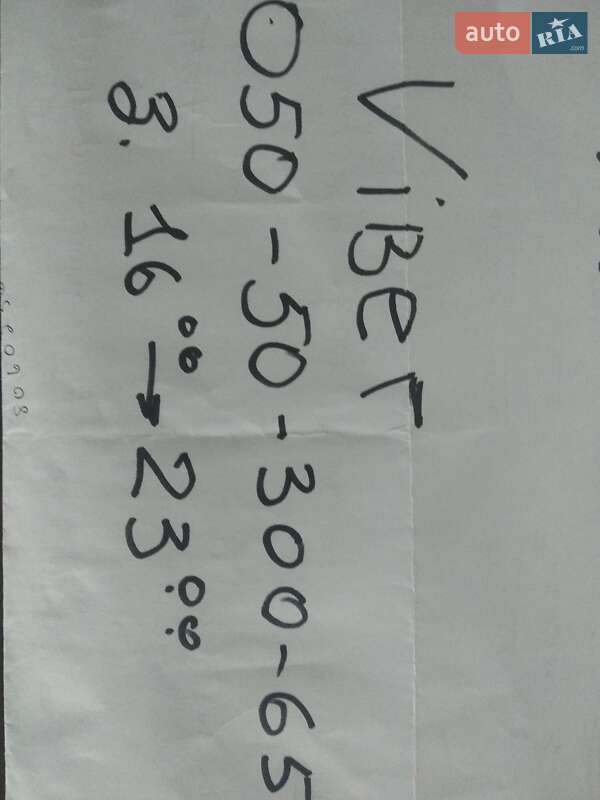 auto RIA.com
ViBer
050-50-300-65
З. 16⁰⁰ → 23⁰⁰